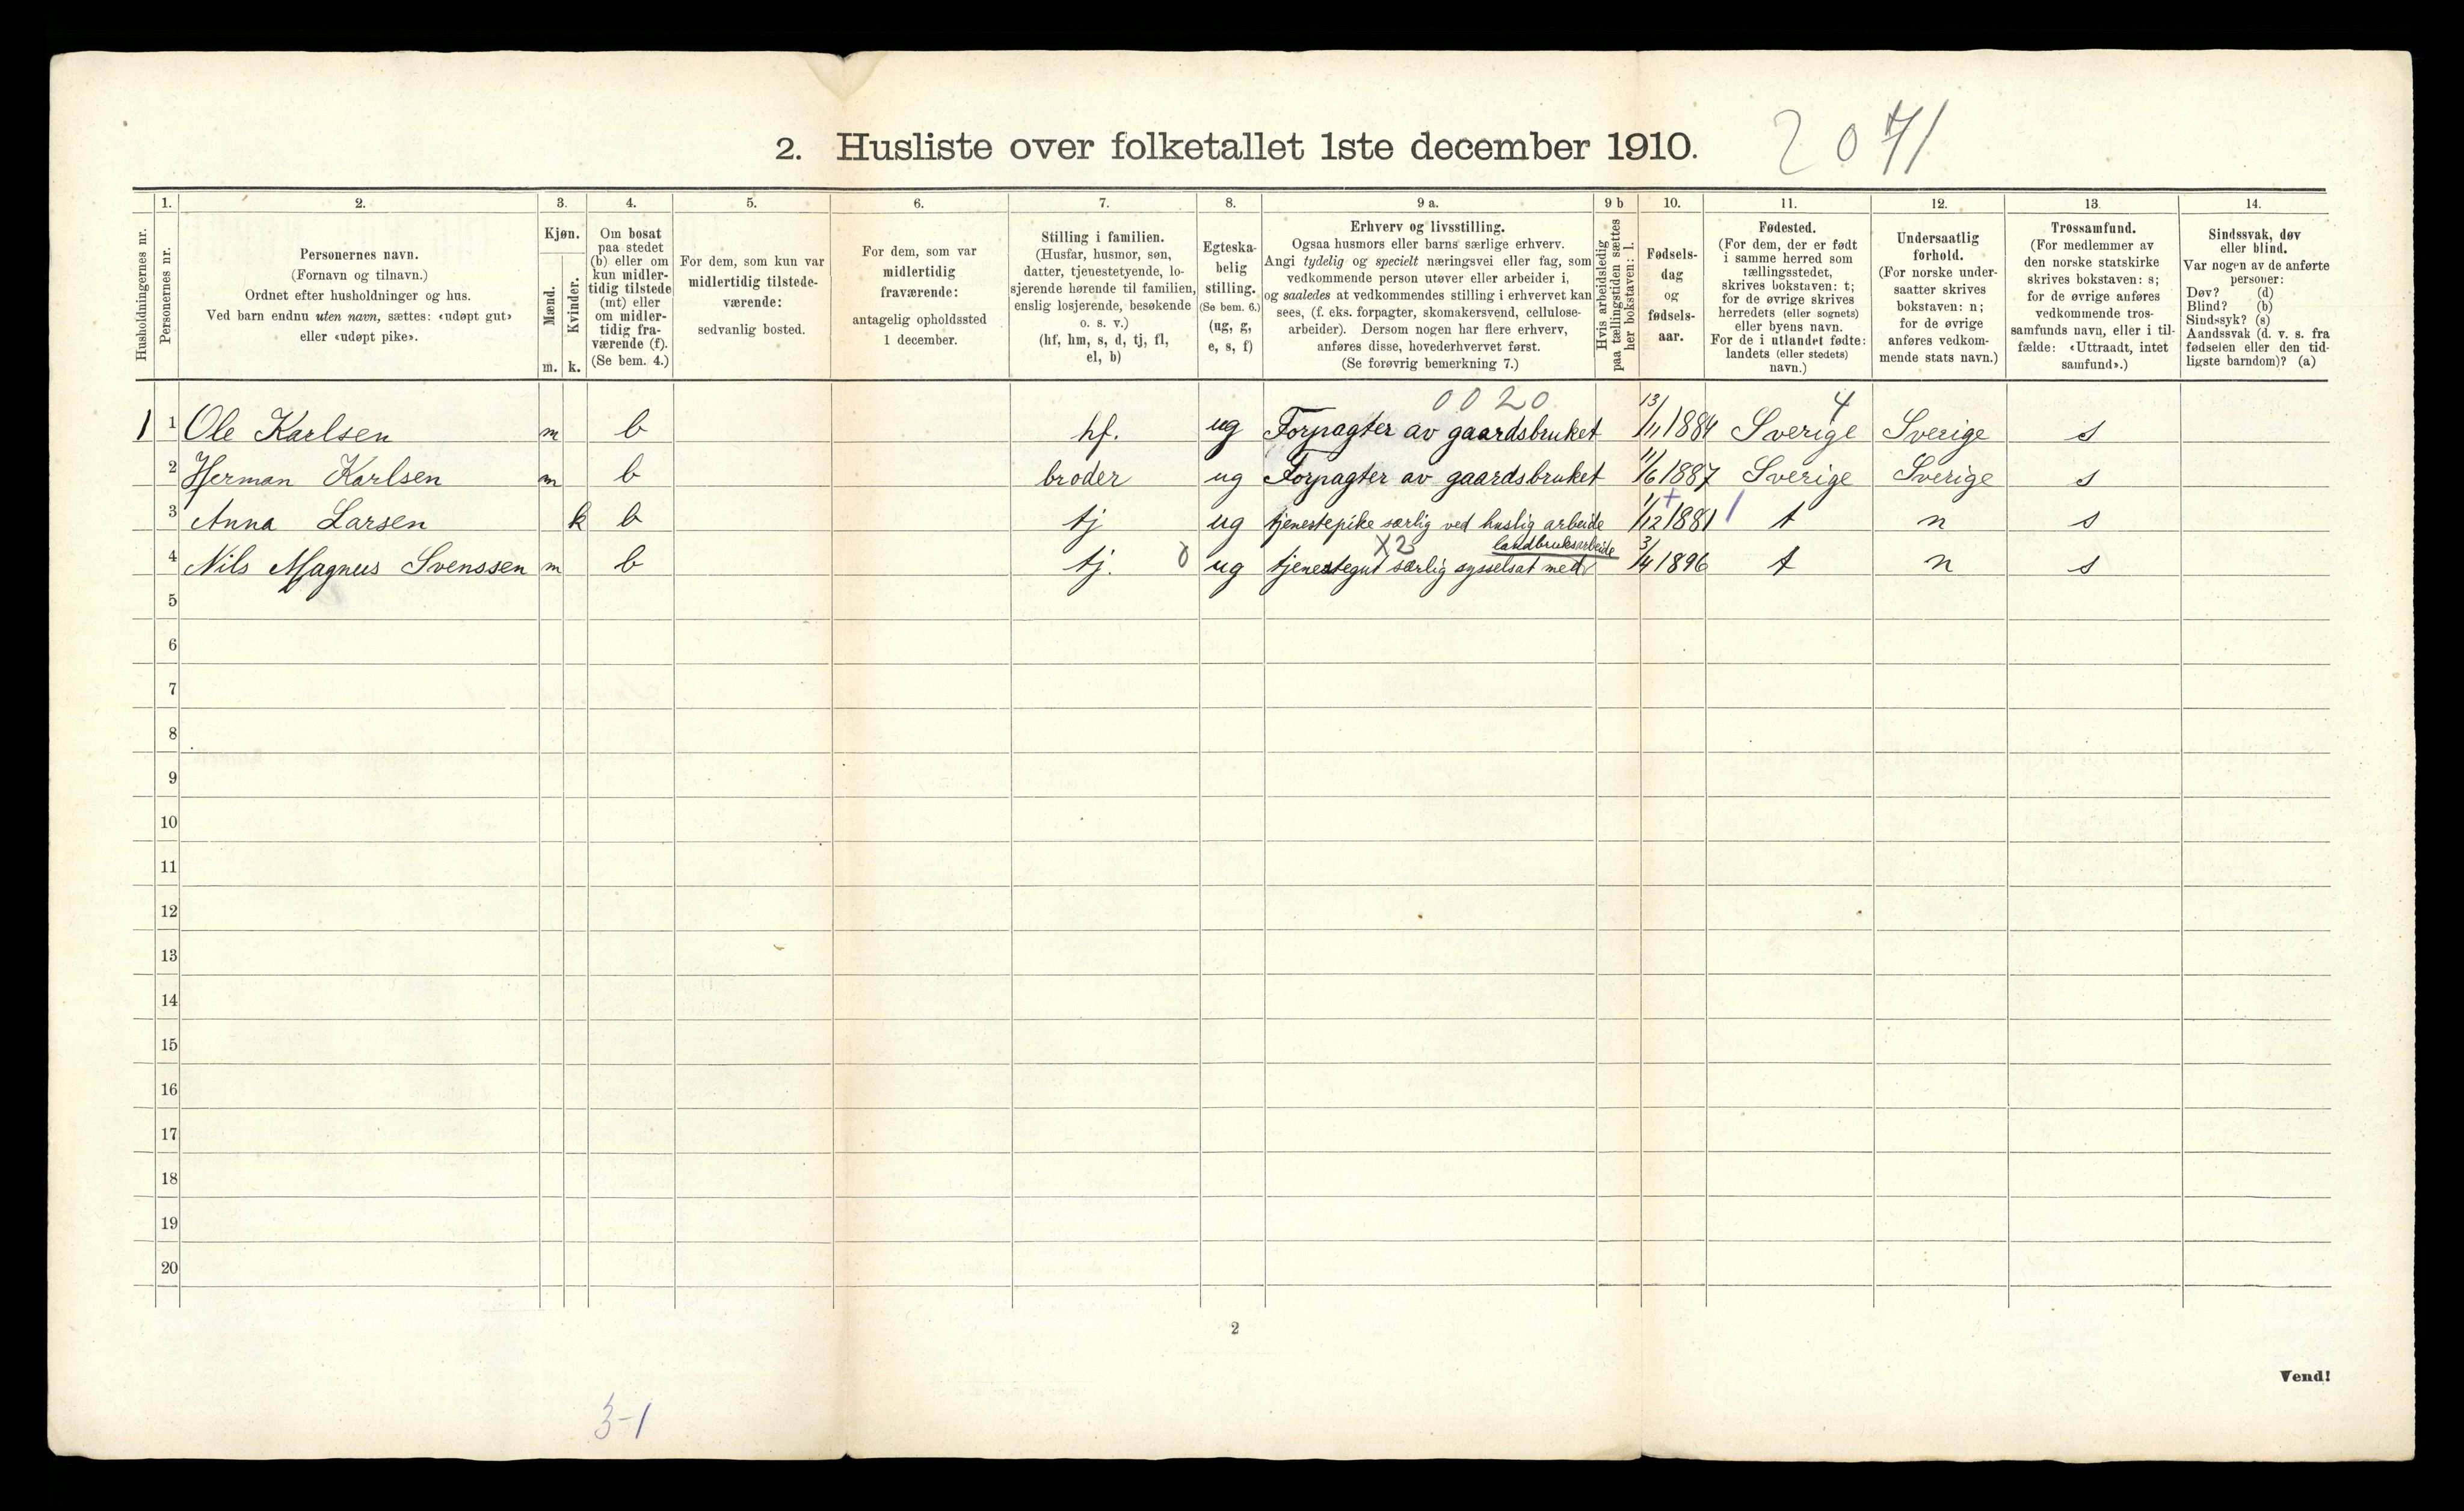 2. Husliste over folketallet 1ste december 1910.
2071
Husholdningernes nr.
1.
Personernes nr.
2.
Personernes navn.
(Fornavn og tilnavn.)
Ordnet efter husholdninger og hus.
Ved barn endnu uten navn, sættes: «udøpt gut»
eller «udøpt pike».
3.
Kjøn.
Mænd.
Kvinder.
m. k.
4.
Om bosat
paa stedet
(b) eller om
kun midler-
tidig tilstede
(mt) eller
om midler-
tidig fra-
værende (f).
(Se bem. 4.)
5.
For dem, som kun var
midlertidig tilstede-
værende:
sedvanlig bosted.
6.
For dem, som var
midlertidig
fraværende:
antagelig opholdssted
1 december.
7.
Stilling i familien.
(Husfar, husmor, søn,
datter, tjenestetyende, lo-
sjerende hørende til familien,
enslig losjerende, besøkende
o. s. v.)
(hf, hm, s, d, tj, fl,
el, b)
8.
Egteska-
belig
stilling.
(Se bem. 6.)
(ug, g,
e, s, f)
9 a.
Erhverv og livsstilling.
Ogsaa husmors eller barns særlige erhverv.
Angi tydelig og specielt næringsvei eller fag, som
vedkommende person utøver eller arbeider i,
og saaledes at vedkommendes stilling i erhvervet kan
sees, (f. eks. forpagter, skomakersvend, cellulose-
arbeider). Dersom nogen har flere erhverv,
anføres disse, hovederhvervet først.
(Se forøvrig bemerkning 7.)
9 b
Hvis arbeidsledig
paa tællingstiden sættes
her bokstaven: l.
10.
Fødsels-
dag
og
fødsels-
aar.
11.
Fødested.
(For dem, der er født
i samme herred som
tællingsstedet,
skrives bokstaven: t;
for de øvrige skrives
herredets (eller sognets)
eller byens navn.
For de i utlandet fødte:
landets (eller stedets)
navn.)
12.
Undersaatlig
forhold.
(For norske under-
saatter skrives
bokstaven: n;
for de øvrige
anføres vedkom-
mende stats navn.)
13.
Trossamfund.
(For medlemmer av
den norske statskirke
skrives bokstaven: s;
for de øvrige anføres
vedkommende tros-
samfunds navn, eller i til-
fælde: «Uttraadt, intet
samfund».)
14.
Sindssvak, døv
eller blind.
Var nogen av de anførte
personer:
Døv? (d)
Blind? (b)
Sindssyk? (s)
Aandssvak (d. v. s. fra
fødselen eller den tid-
ligste barndom)? (a)
0020 4
1 1 Ole Karlsen m b hf. ug Forpagter av gaardsbruket 13/11 1884 Sverige Sverige s
2 Herman Karlsen m b broder ug Forpagter av gaardsbruket 11/6 1887 Sverige Sverige s
3 Anna Larsen k b tj ug tjenestepike særlig ved huslig arbeide 1/12 1881 t n s
X2 landbruksarbeide
4 Nils Magnus Svenssen m b tj. ug tjenestegut særlig sysselsat med 3/4 1896 t n s
5
6
7
8
9
10
11
12
13
14
15
16
17
18
19
20
2
Vend!
3-1